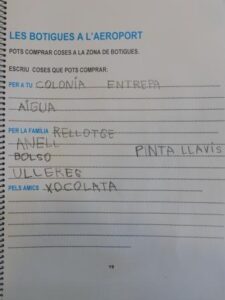 LES BOTIGUES A L'AEROPORT
POTS COMPRAR COSES A LA ZONA DE BOTIGUES.
ESCRIU COSES QUE POTS COMPRAR:
PER A TU COLONIA ENTREPA
AIGUA
PER LA FAMILIA RELLOTGE
ANELL
BOLSO PINTA LLAVIS
ULLERES
PELS AMICS XOCOLATA
19